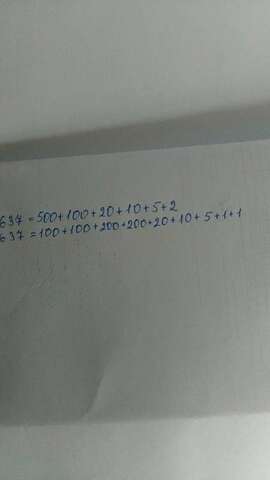 637 = 500+100+20+10+5+2
637 = 100+100+200+200+20+10+5+1+1